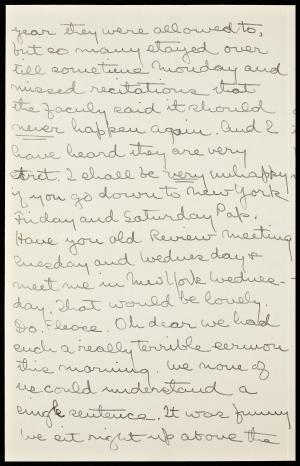 year they were allowed to,
but so many stayed over
till sometime Monday and
missed recitations that
the faculy said it should
never happen again. And I
have heard they are very
strict. I shall be very unhappy
if you go down to New York
Friday and Saturday Pats.
Have you old Review meeting
Tuesday and Wednesday &
meet me in New York Wednes-
day. That would be lovely.
Do. Please. Oh dear we had
such a really terrible sermon
this morning. We none of
us could understand a
single sentence. It was funny
We sit right up above the